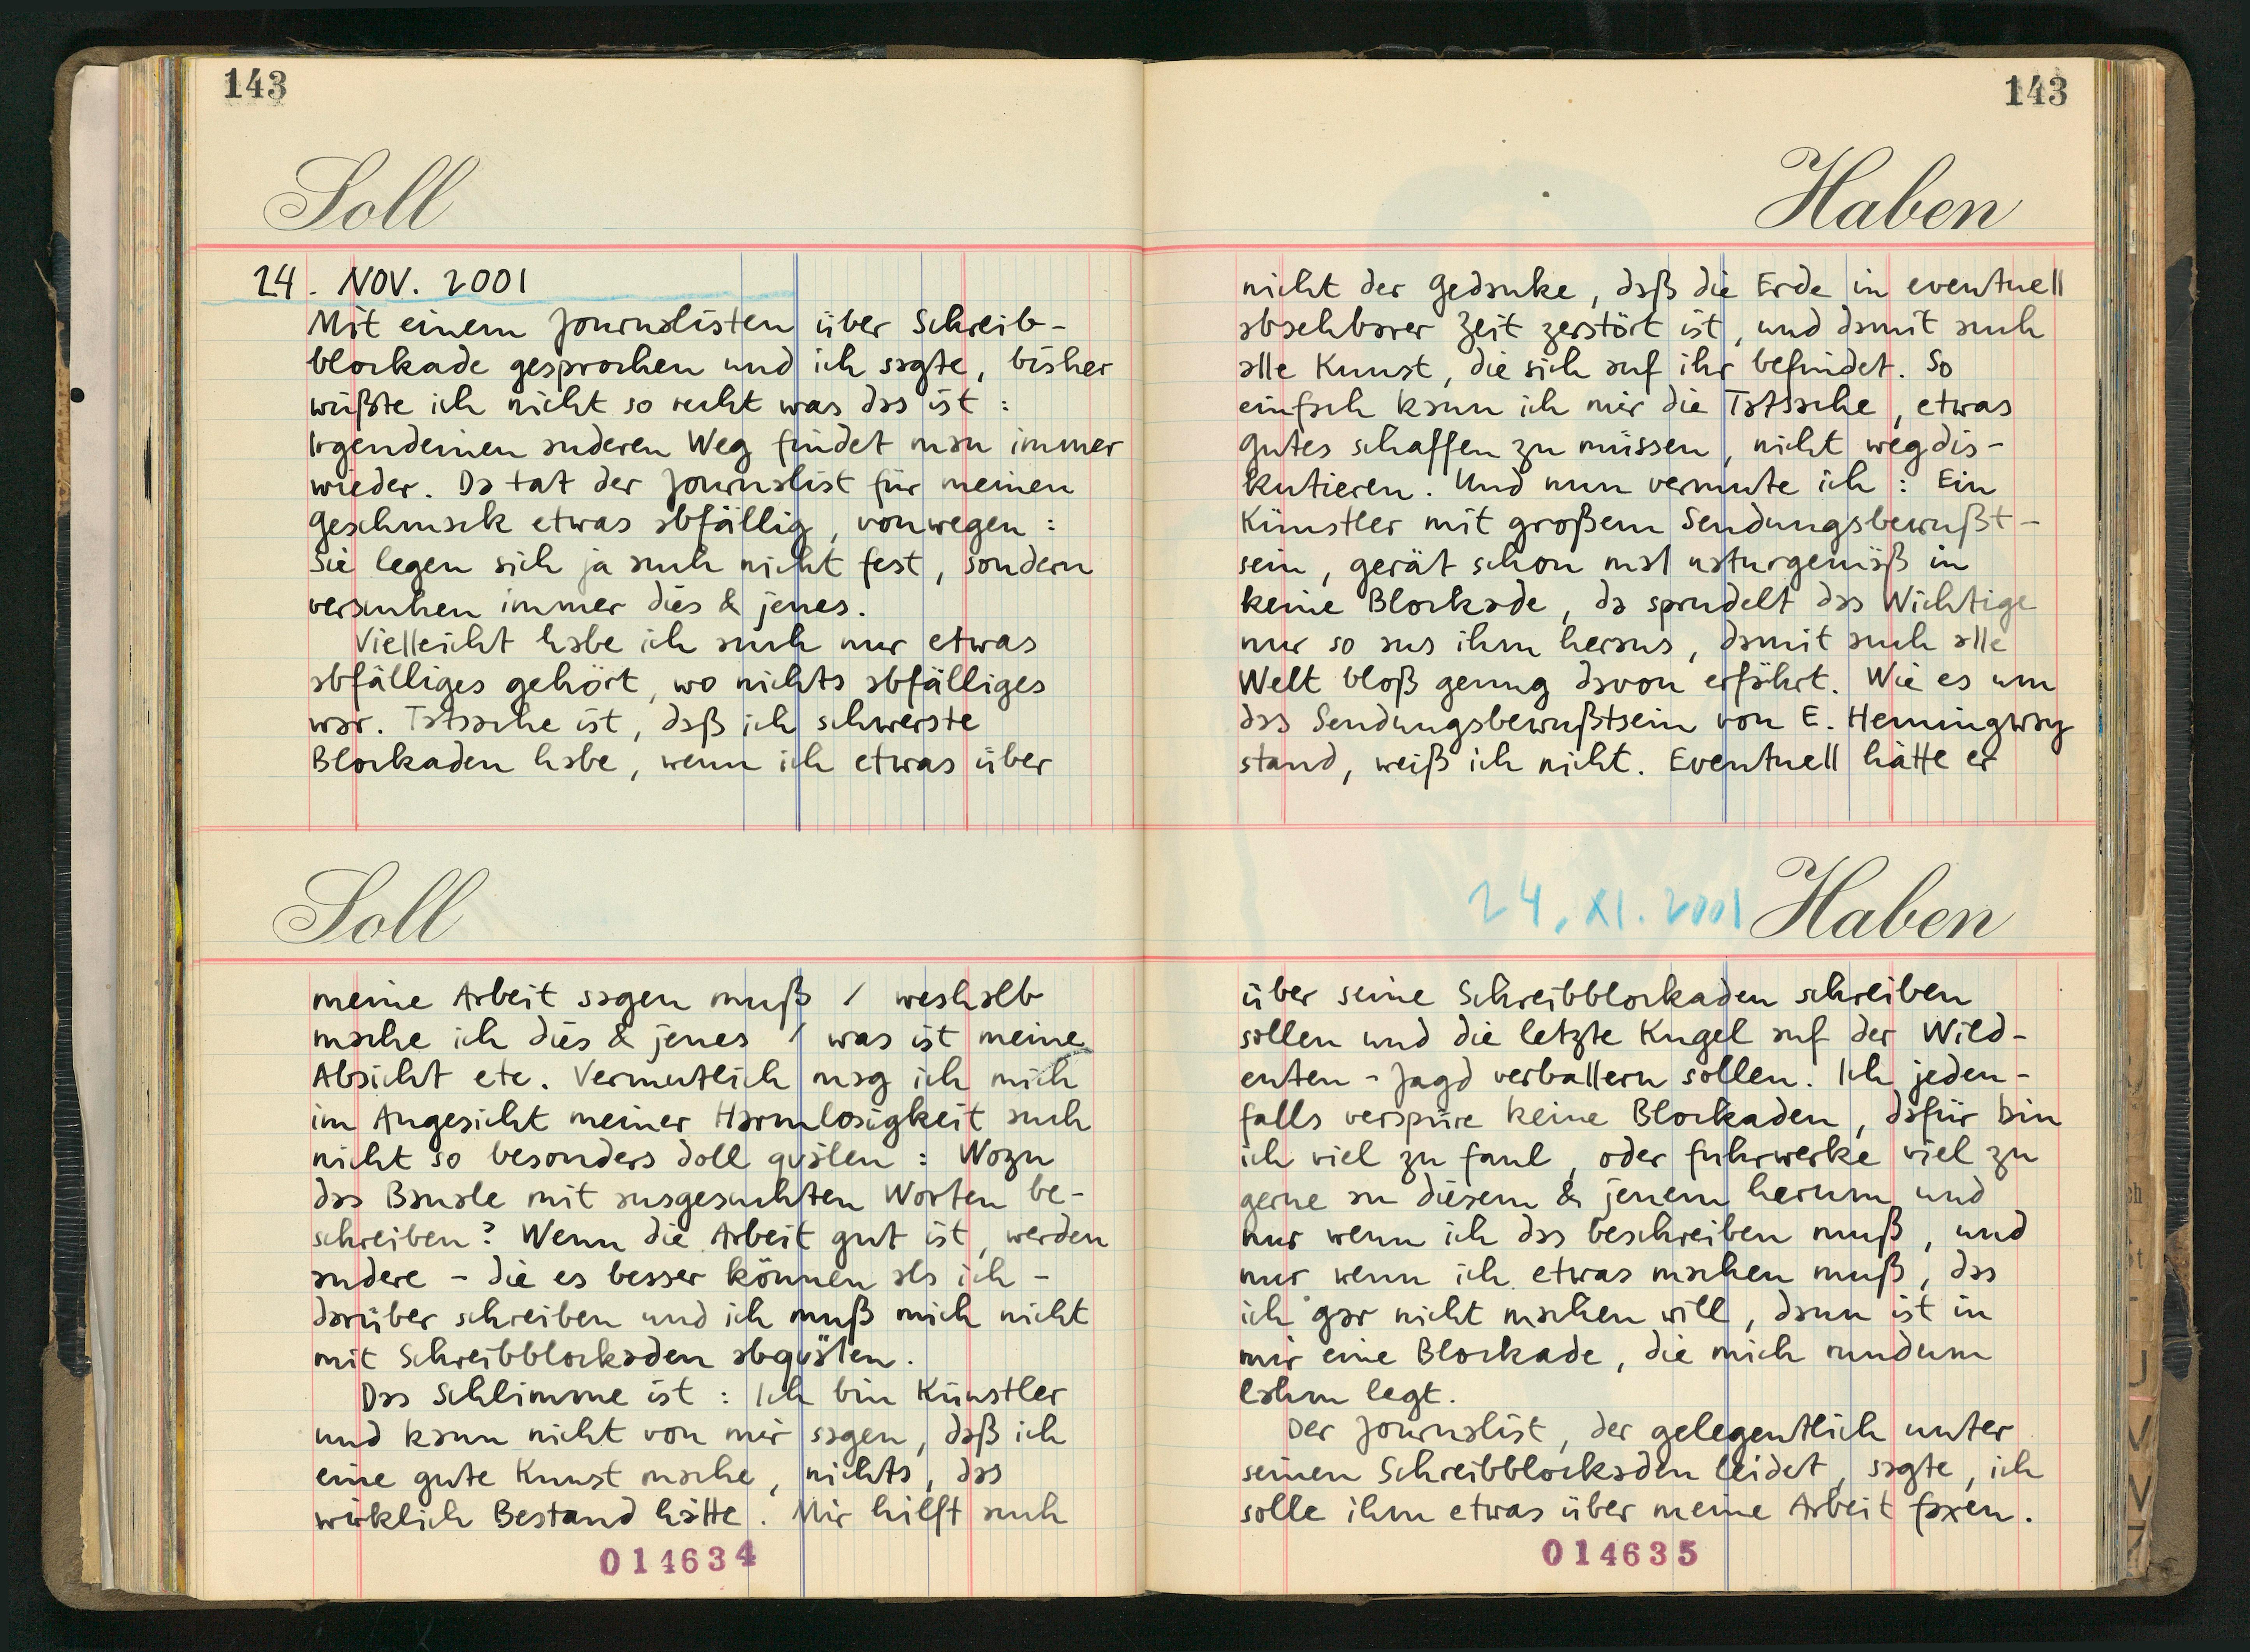 143
Soll
24. NOV. 2001
Mit einem Journalisten über Schreib-
blockade gesprochen und ich sagte, bisher
wüßte ich nicht so recht was das ist :
Irgendeinen anderen Weg findet man immer
wieder. Da tat der Journalist für meinen
Geschmack etwas abfällig, vonwegen :
Sie legen sich ja auch nicht fest, sondern
versuchen immer dies & jenes.
Vielleicht habe ich auch nur etwas
abfälliges gehört, wo nichts abfälliges
war. Tatsache ist, daß ich schwerste
Blockaden habe, wenn ich etwas über
Soll
meine Arbeit sagen muß / weshalb
mache ich dies & jenes / was ist meine
Absicht etc. Vermutlich mag ich mich
im Angesicht meiner Harmlosigkeit auch
nicht so besonders doll quälen : Wozu
das Banale mit ausgesuchten Worten be-
schreiben? Wenn die Arbeit gut ist, werden
andere - die es besser können als ich -
darüber schreiben und ich muß mich nicht
mit Schreibblockaden abquälen.
Das Schlimme ist : Ich bin Künstler
und kann nicht von mir sagen, daß ich
eine gute Kunst mache, nichts, das
wirklich Bestand hätte. Mir hilft auch
014634
143
Haben
nicht der Gedanke, daß die Erde in eventuell
absehbarer Zeit zerstört ist, und damit auch
alle Kunst, die sich auf ihr befindet. So
einfach kann ich mir die Tatsache, etwas
Gutes schaffen zu müssen, nicht wegdis-
kutieren. Und nun vermute ich : Ein
Künstler mit großem Sendungsbewußt-
sein, gerät schon mal naturgemäß in
keine Blockade, da sprudelt das Wichtige
nur so aus ihm heraus, damit auch alle
Welt bloß genug davon erfährt. Wie es um
das Sendungsbewußtsein von E. Hemingway
stand, weiß ich nicht. Eventuell hätte er
24. XI. 2001 Haben
über seine Schreibblockaden schreiben
sollen und die letzte Kugel auf der Wild-
enten-Jagd verballern sollen. Ich jeden-
falls verspüre keine Blockaden, dafür bin
ich viel zu faul, oder fuhrwerke viel zu
gerne an diesem & jenem herum und
nur wenn ich das beschreiben muß, und
nur wenn ich etwas machen muß, das
ich gar nicht machen will, dann ist in
mir eine Blockade, die mich rundum
lahm legt.
Der Journalist, der gelegentlich unter
seinen Schreibblockaden leidet, sagte, ich
solle ihm etwas über meine Arbeit faxen.
014635